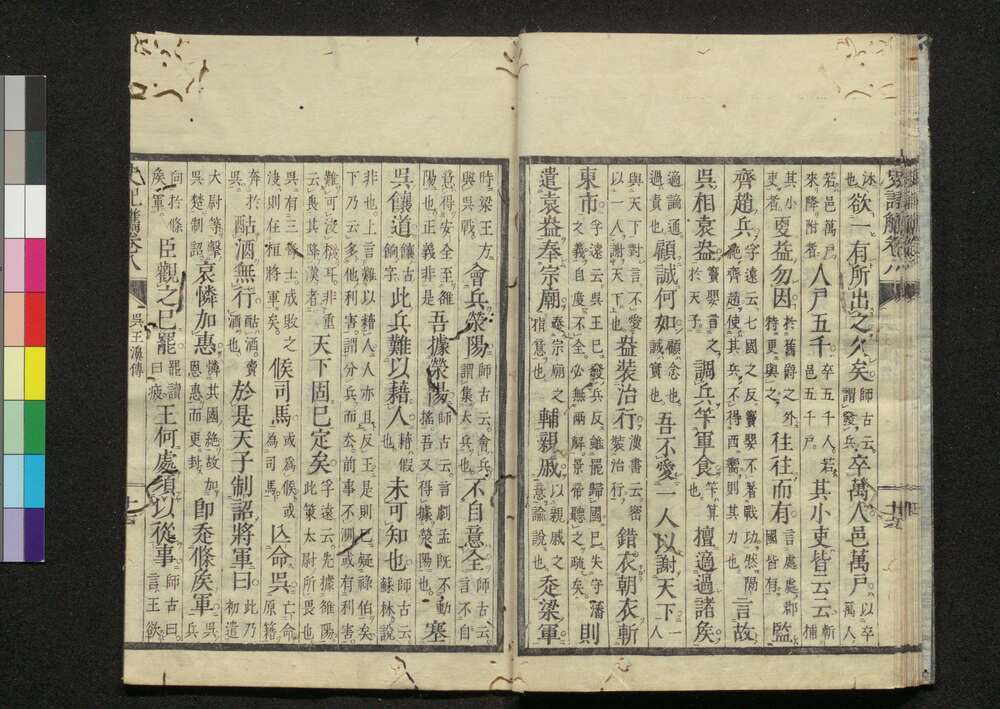 欲一有所出之久矣師古云謂發兵卒萬人邑萬戶以卒萬人
若邑萬戶來降附者人戶五千卒五千人若邑五千戶其小吏皆云云斬捕
其小吏者更益勿因於舊爵之外特更與之往往而有言處處郡國皆有監
齊趙兵字遠云七國之反竇嬰不著戰功然陽監齊趙使其兵不得西嚮則其力也言故
吳相袁盎竇嬰言之於天子調兵筭軍食筭算也擅適過諸矦
適謫通過責也顧誠何如顧念也誠實也吾不愛一人以謝天下一人
與天下對言不愛以一人謝天下也盎裝治行漢書云密裝治行錯衣朝衣斬
東市字遠云吳王已發兵反雖罷歸國已失守藩之義自度不全必無兩解景帝聽之疏矣則
遣袁盎奉宗廟奉宗廟之指意也輔親戚以親戚之意諭說也至梁軍
時梁王方與吳戰會兵滎陽師古云會兵謂集大兵也不自意全師古云言不自
意得安全至雒陽也正義非是吾據滎陽師古云言劇孟既不動搖吾又得據滎陽也塞
吳饟道饟古餉字此兵難以藉人藉假也未可知也師古云蘇林說
非也上言難以藉人人亦且反王是則已疑祿伯矣下乃云多他利害謂分兵而去前事不測或有利害
難可沒機耳非重云與其降漢者天下固已定矣字遠云先據雒陽此策太尉所畏也
吳有三條士成敗之則在桓將軍矣候司馬或爲候或爲司馬亾命吳亡命原籍
奔於吳酤酒無行酤酒賣酒也於是天子制詔將軍曰此乃初遣
大尉等擊吳楚制詔哀憐加惠憐其國絶故加恩惠而更封即至條矦軍吳兵
向於條矦軍臣觀之已罷罷讀曰疲王何處須以從事師古曰言王欲
吳王濞傳